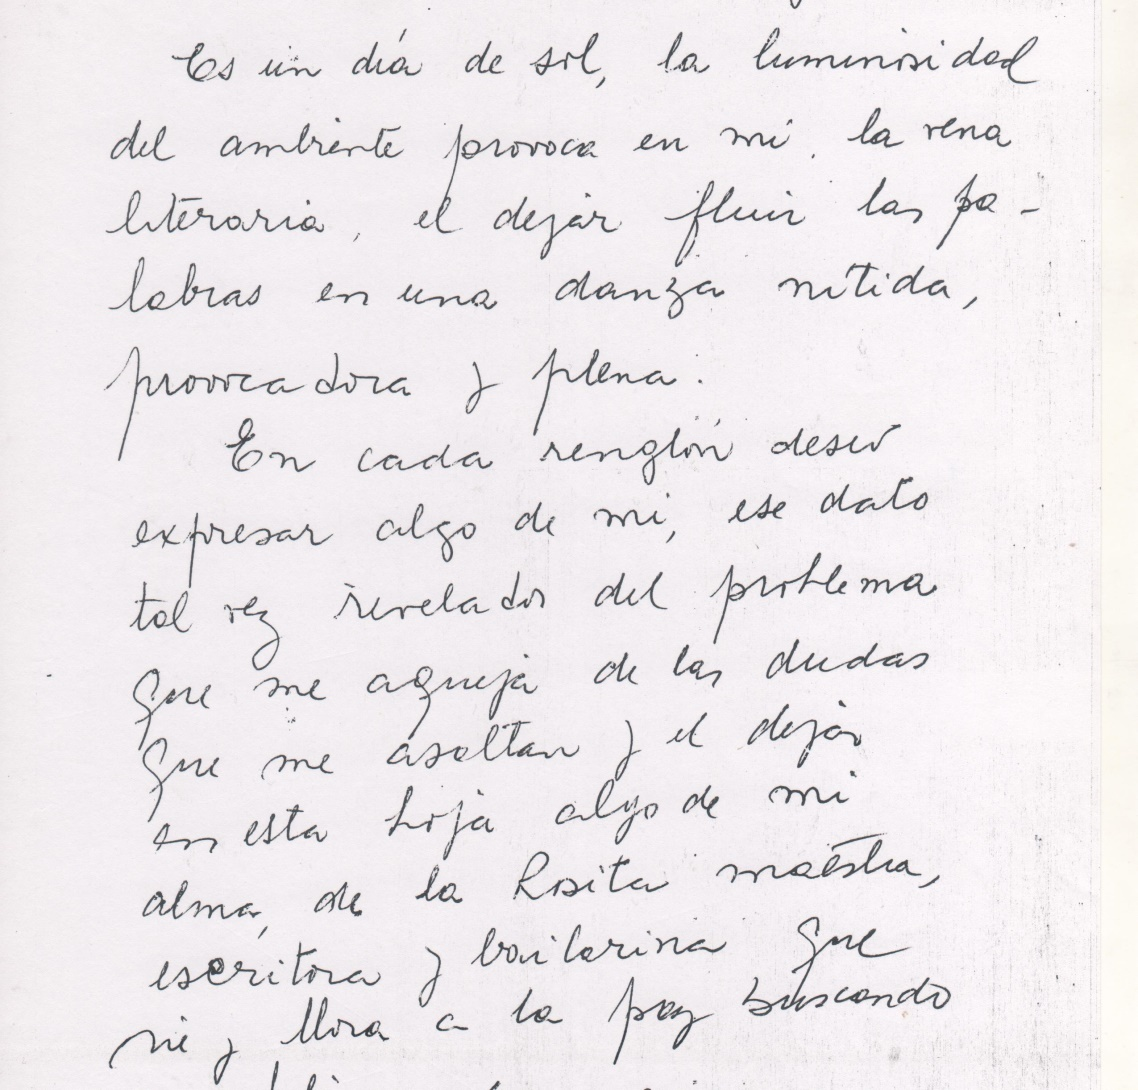 Es un día de sol, la luminosidad
del ambiente provoca en mí, la vena
literaria, el dejar fluir las pa-
labras en una danza nítida,
provocadora y plena.
En cada renglón deseo
expresar algo de mi, ese dato
tal vez revelador del problema
que me aqueja de las dudas
que me asaltan y el dejar
en esta hoja algo de mi
alma, de la Rosita maestra,
escritora y bailarina que
ríe y llora a la paz buscando